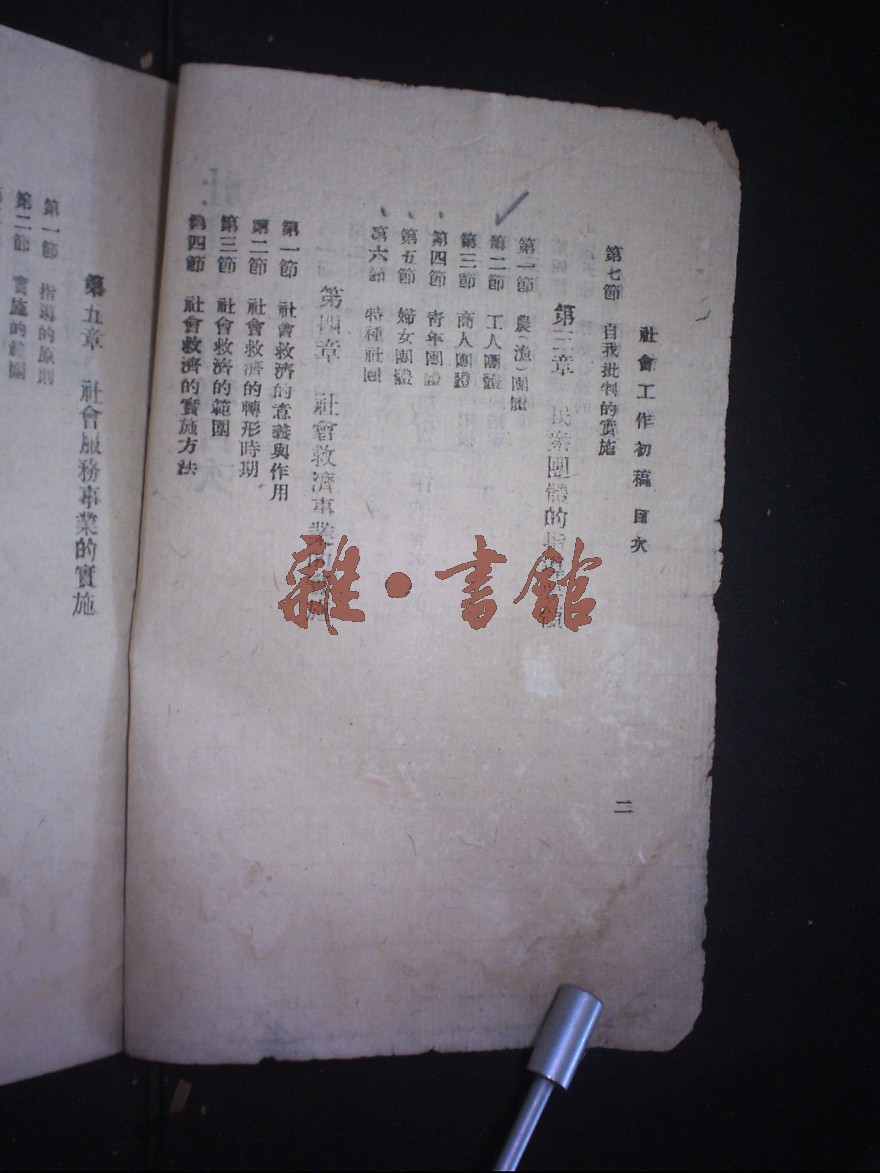 社會工作初稿 目次
二
第七節 自我批判的實施
第三章 民眾團體的指
第一節 農(漁)團體
第二節 工人團體
第三節 商人團體
第四節 青年團體
第五節 婦女團體
第六節 特種社團
第四章 社會救濟事業的實施
第一節 社會救濟的意義與作用
第二節 社會救濟的轉形時期
第三節 社會救濟的範圍
第四節 社會救濟的實施方法
第五章 社會服務事業的實施
第一節 指導的原則
第二節 實施的範圍
雜·書館